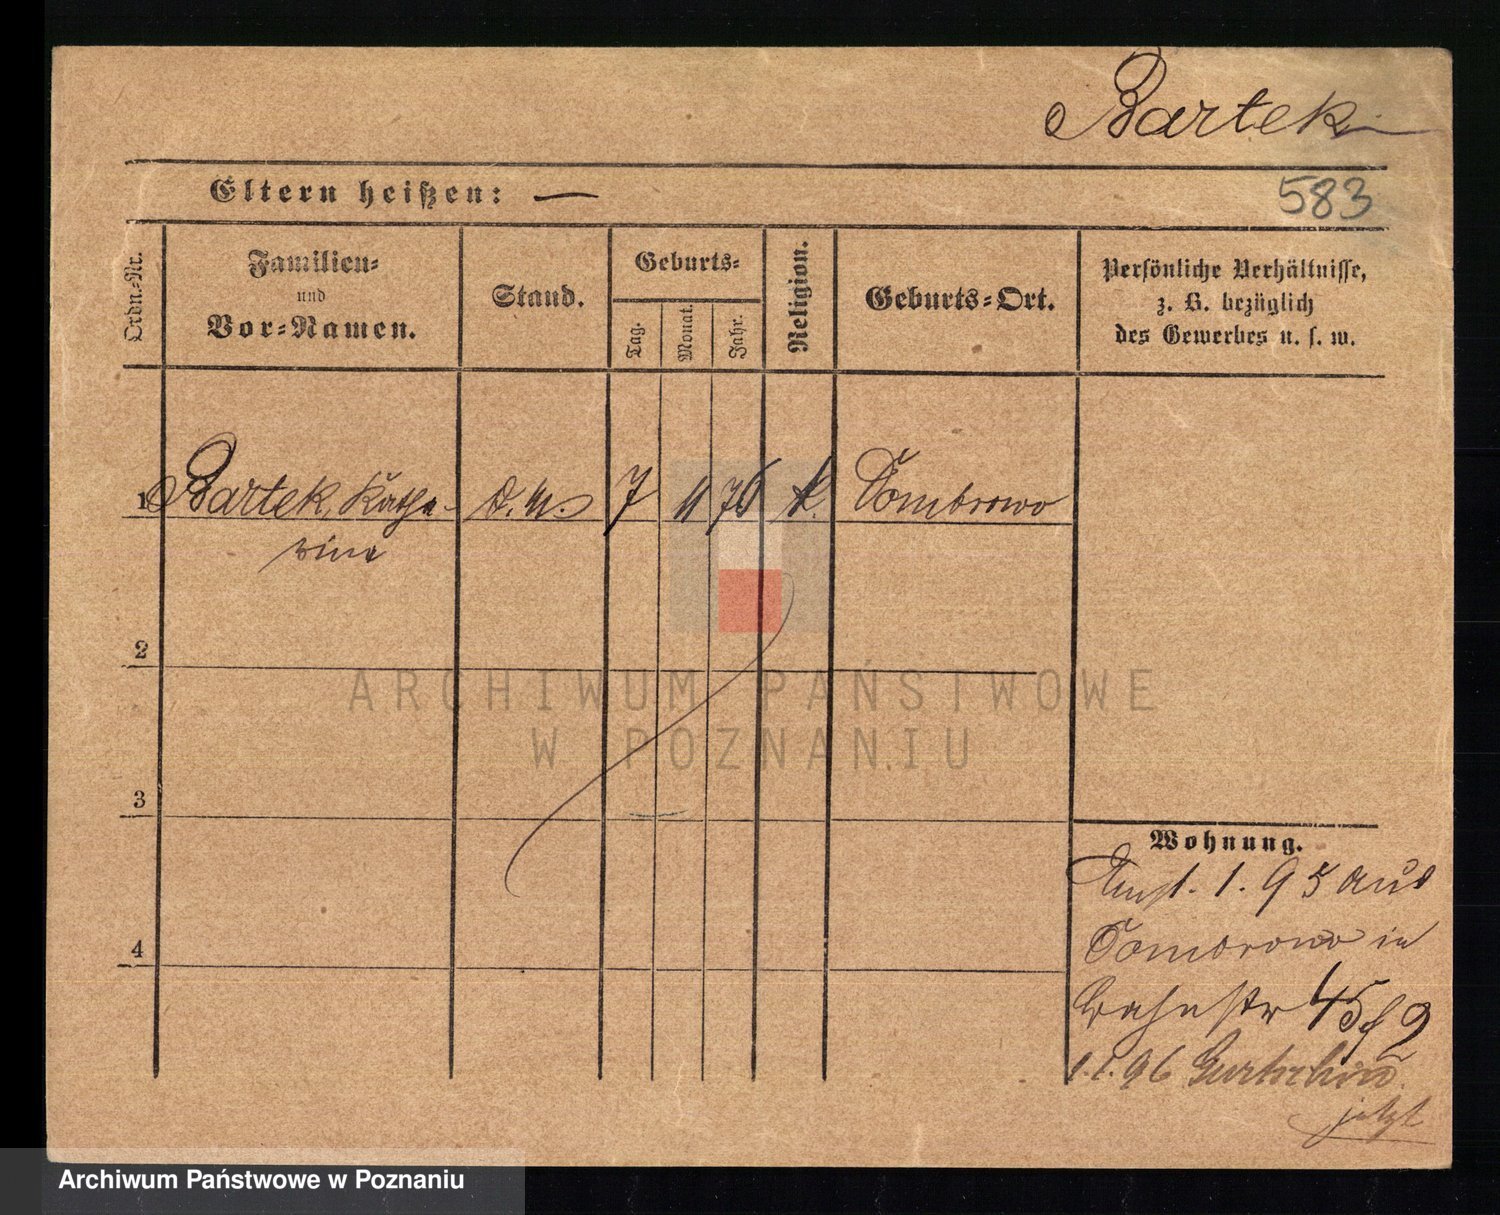 Bartek
Eltern heißen: —
583
Ordn.-Nr.
Familien-
und
Vor-Namen.
Stand.
Geburts-
Tag.
Monat.
Jahr.
Religion.
Geburts-Ort.
Persönliche Verhältnisse,
z. B. bezüglich
des Gewerbes u. s. w.
1 Bartek, Katha- 7 11 76 k. Dombrowo
rina
2
ARCHIWUM PAŃSTWOWE
W POZNANIU
3
Wohnung.
1. 95 aus
Dombrowo in
4
Bahnstr 45
1.1.96
jetzt
Archiwum Państwowe w Poznaniu